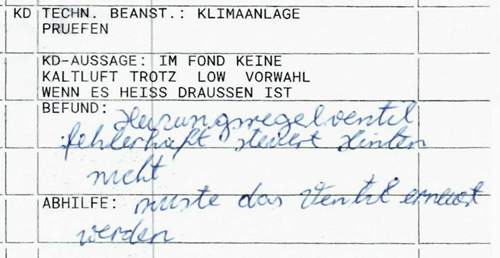 KD TECHN. BEANST.: KLIMAANLAGE
PRUEFEN
KD-AUSSAGE: IM FOND KEINE
KALTLUFT TROTZ LOW VORWAHL
WENN ES HEISS DRAUSSEN IST
BEFUND: Heizungsregelventil
fehlerhaft steuert Hinten
nicht
ABHILFE: müste das Ventil erneuert
werden